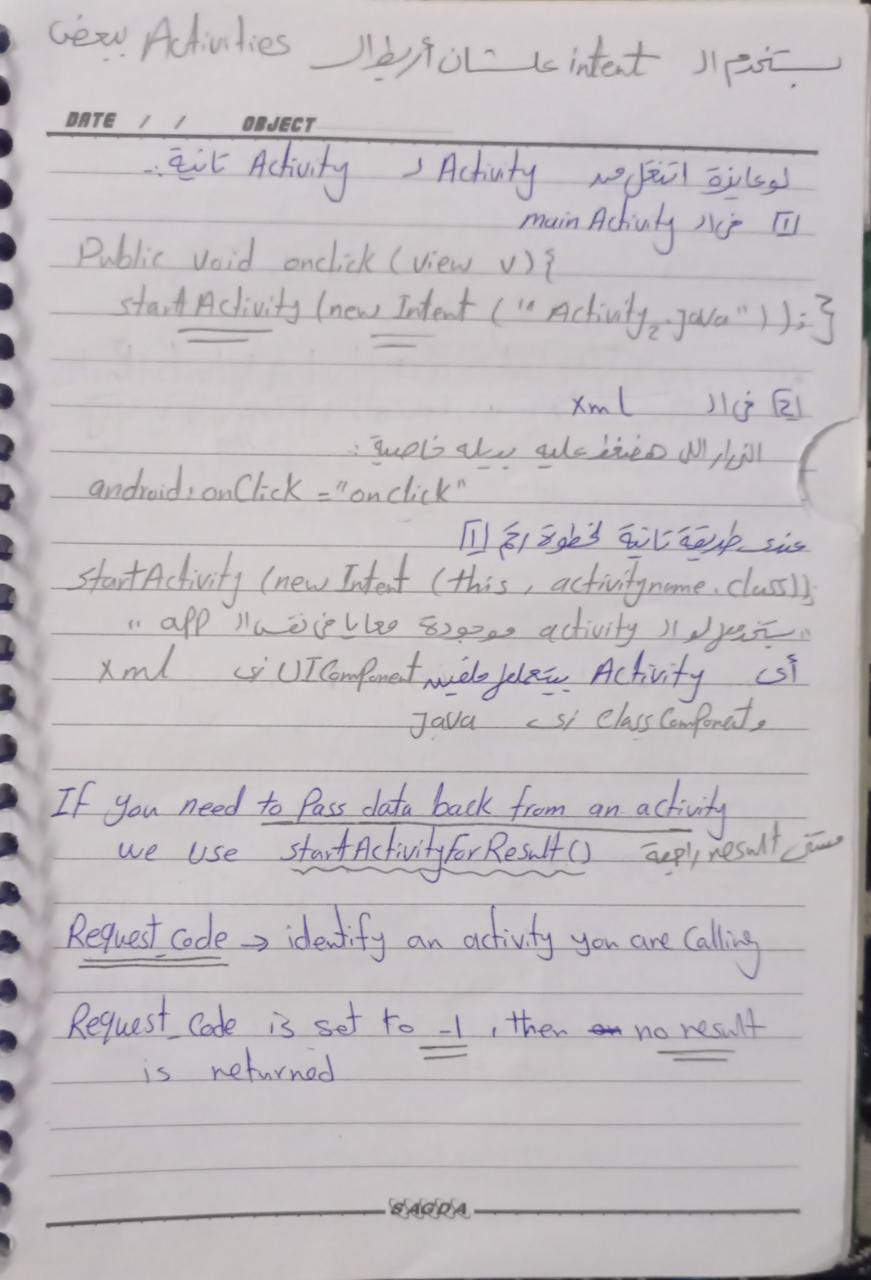 بستخدم ال intent علشان أربط ال Activities ببعض
DATE / / OBJECT
لو عايزة اتنقل من Activity ل Activity تانية :.
[1] في ال main Activity
Public void onclick (view v) {
startActivity (new Intent ("Activity2.java")); }
[2] في ال xml
الزرار اللي هضغط عليه بيبقى له خاصية :
android:onClick = "onclick"
عندي طريقة تانية لخطوة رقم [1]
startActivity (new Intent (this, activityname.class));
"بستخدم لو ال activity موجودة معايا في نفس ال app"
أى Activity بيتعمل ملفين UI Component زى xml
و Class Component زى Java
If you need to Pass data back from an activity
we use startActivityforResult() مستنى result راجعة
Request_Code → identify an activity you are Calling
Request_Code is set to -1, then no result
is returned
SAGDA